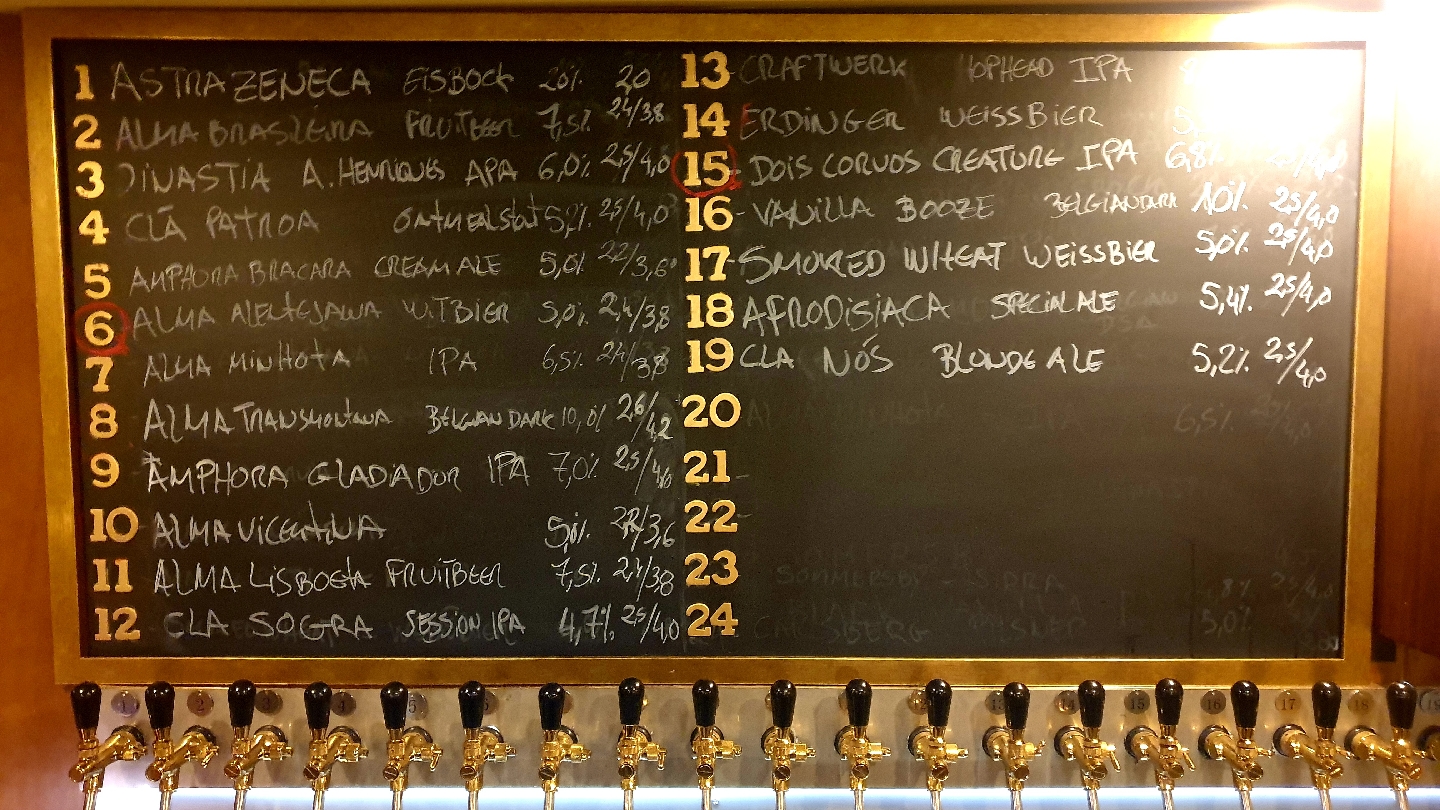 1 ASTRAZENECA EISBOCK 20% 20
2 ALMA BRASILEIRA FRUITBEER 7,5% 24/3,8
3 DINASTIA A. HENRIQUES APA 6,0% 2,5/4,0
4 CLÃ PATROA OATMEAL STOUT 2,5/4,0
5 AMPHORA BRACARA CREAM ALE 5,0% 22/3,6
6 ALMA ALENTEJANA WITBIER 5,0% 2,4/3,8
7 ALMA MINHOTA IPA 6,5% 24/3,8
8 ALMA TRANSMONTANA BELGIAN DARK 10,0% 2,6/4,2
9 AMPHORA GLADIADOR IPA 7,0% 2,5/4,0
10 ALMA VICENTINA 5,0% 22/3,6
11 ALMA LISBOETA FRUITBEER 7,5% 2,4/3,8
12 CLA SOGRA SESSION IPA 4,7% 25/4,0
13 CRAFTWERK HOPHEAD IPA
14 ERDINGER WEISSBIER
15 DOIS CORVOS CREATURE IPA 6,8% 2,5/4,0
16 - VANILLA BOOZE BELGIAN DARK 10% 2,5/4,0
17 - SMOKED WHEAT WEISSBIER 5,0% 2,5/4,0
18 AFRODISIACA SPECIAL ALE 5,4% 2,5/4,0
19 CLA NÓS BLONDE ALE 5,2% 2,5/4,0
20 IPA 6,5%
21
22
23 SOMMERSBY
24 CARLSBERG PILSNER 5,0%
1
2
3
4
5
13
14
15
16
17
18